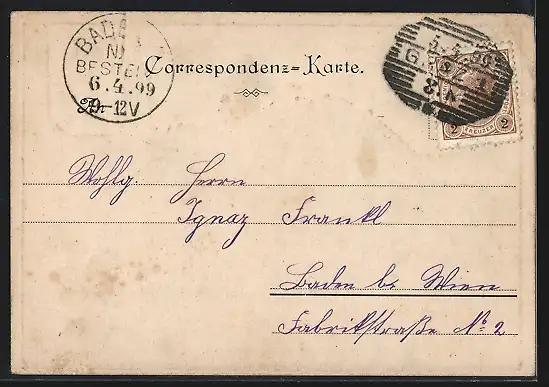 BADEN
N
BESTELLT
6.4.99
9-12V
Correspondenz=Karte.
An
5.4.99
8.N.
2 KREUZER 2
Wohlg. Herrn
Ignaz Frankl
Baden b. Wien
Fabrikstraße No. 2